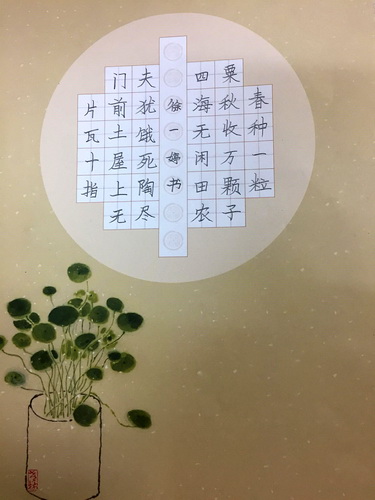 春种一粒
粟秋收万颗子
四海无闲田农
徐一婷书
夫犹饿死陶尽
门前土屋上无
片瓦十指